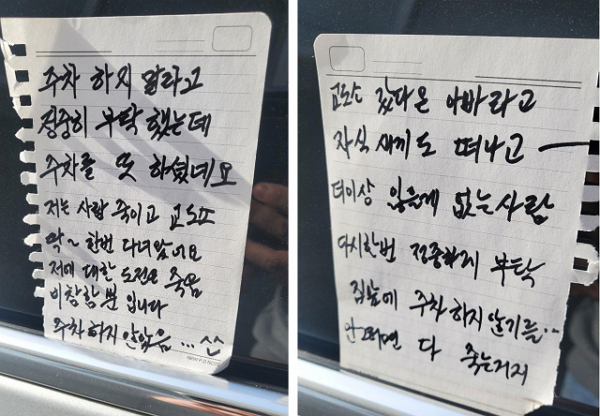 주차 하지 말라고
정중히 부탁 했는데
주차를 또 하셨네요
저는 사람 죽이고 교도소
딱~ 한번 다녀왔어요
저에 대한 도전은 죽음
비참함 뿐 입니다
주차하지 않았음 ... ^^
교도소 갔다온 아빠라고
자식 새끼도 떠나고
더이상 잃을게 없는사람
다시한번 정중하게 부탁
집앞에 주차하지 않기를..
안그러면 다 죽는거지